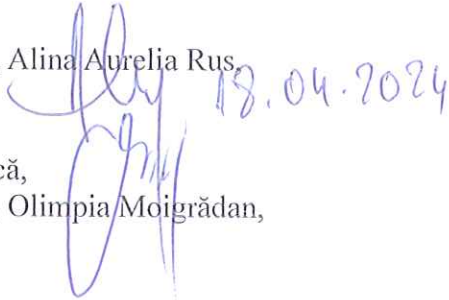 Alina Aurelia Rus,
18.04.2024
că,
Olimpia Moigrădan,